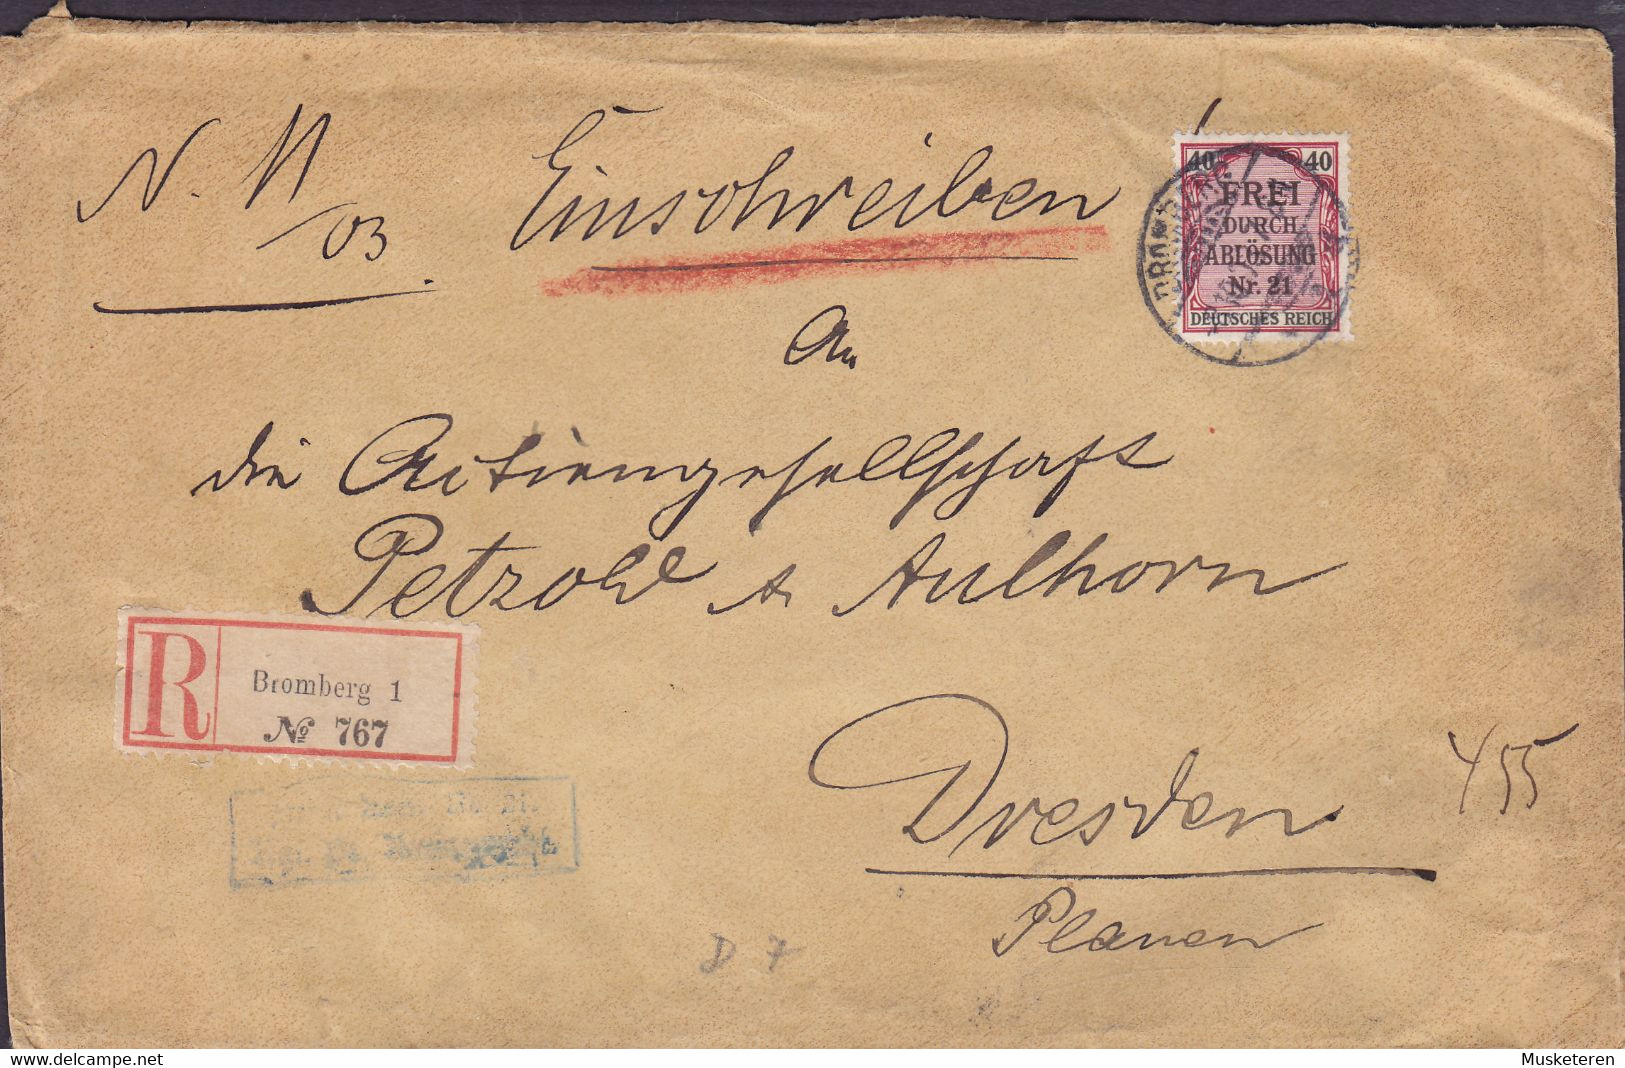 N. 11
/03
Einschreiben
40 40
FREI
DURCH
ABLÖSUNG
Nr. 21
DEUTSCHES REICH
An
die Actiengesellschaft
Petzold & Aulhorn
R
Bromberg 1
№ 767
Dresden
Plauen
455
D 7
www.delcampe.net
Musketeren